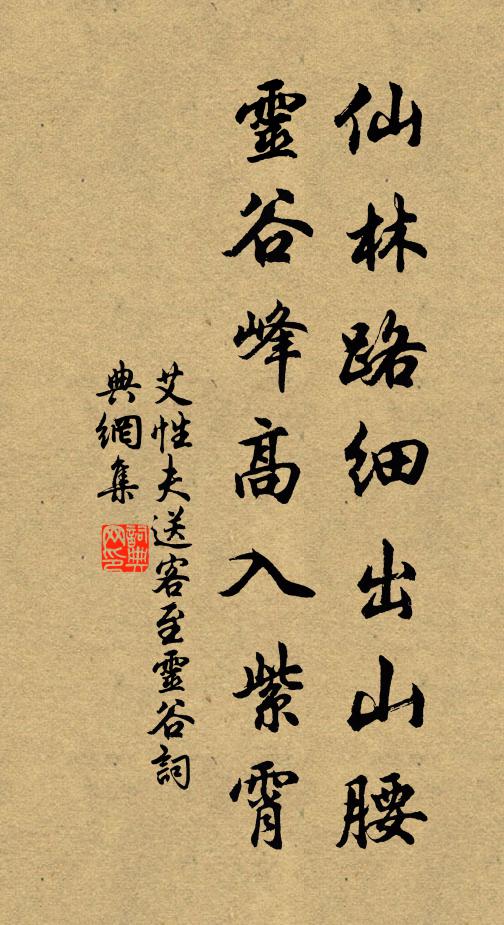 仙林路细出山腰
靈谷峰高入紫霄
艾性夫送客至靈谷詞
典網集
詞典
网印